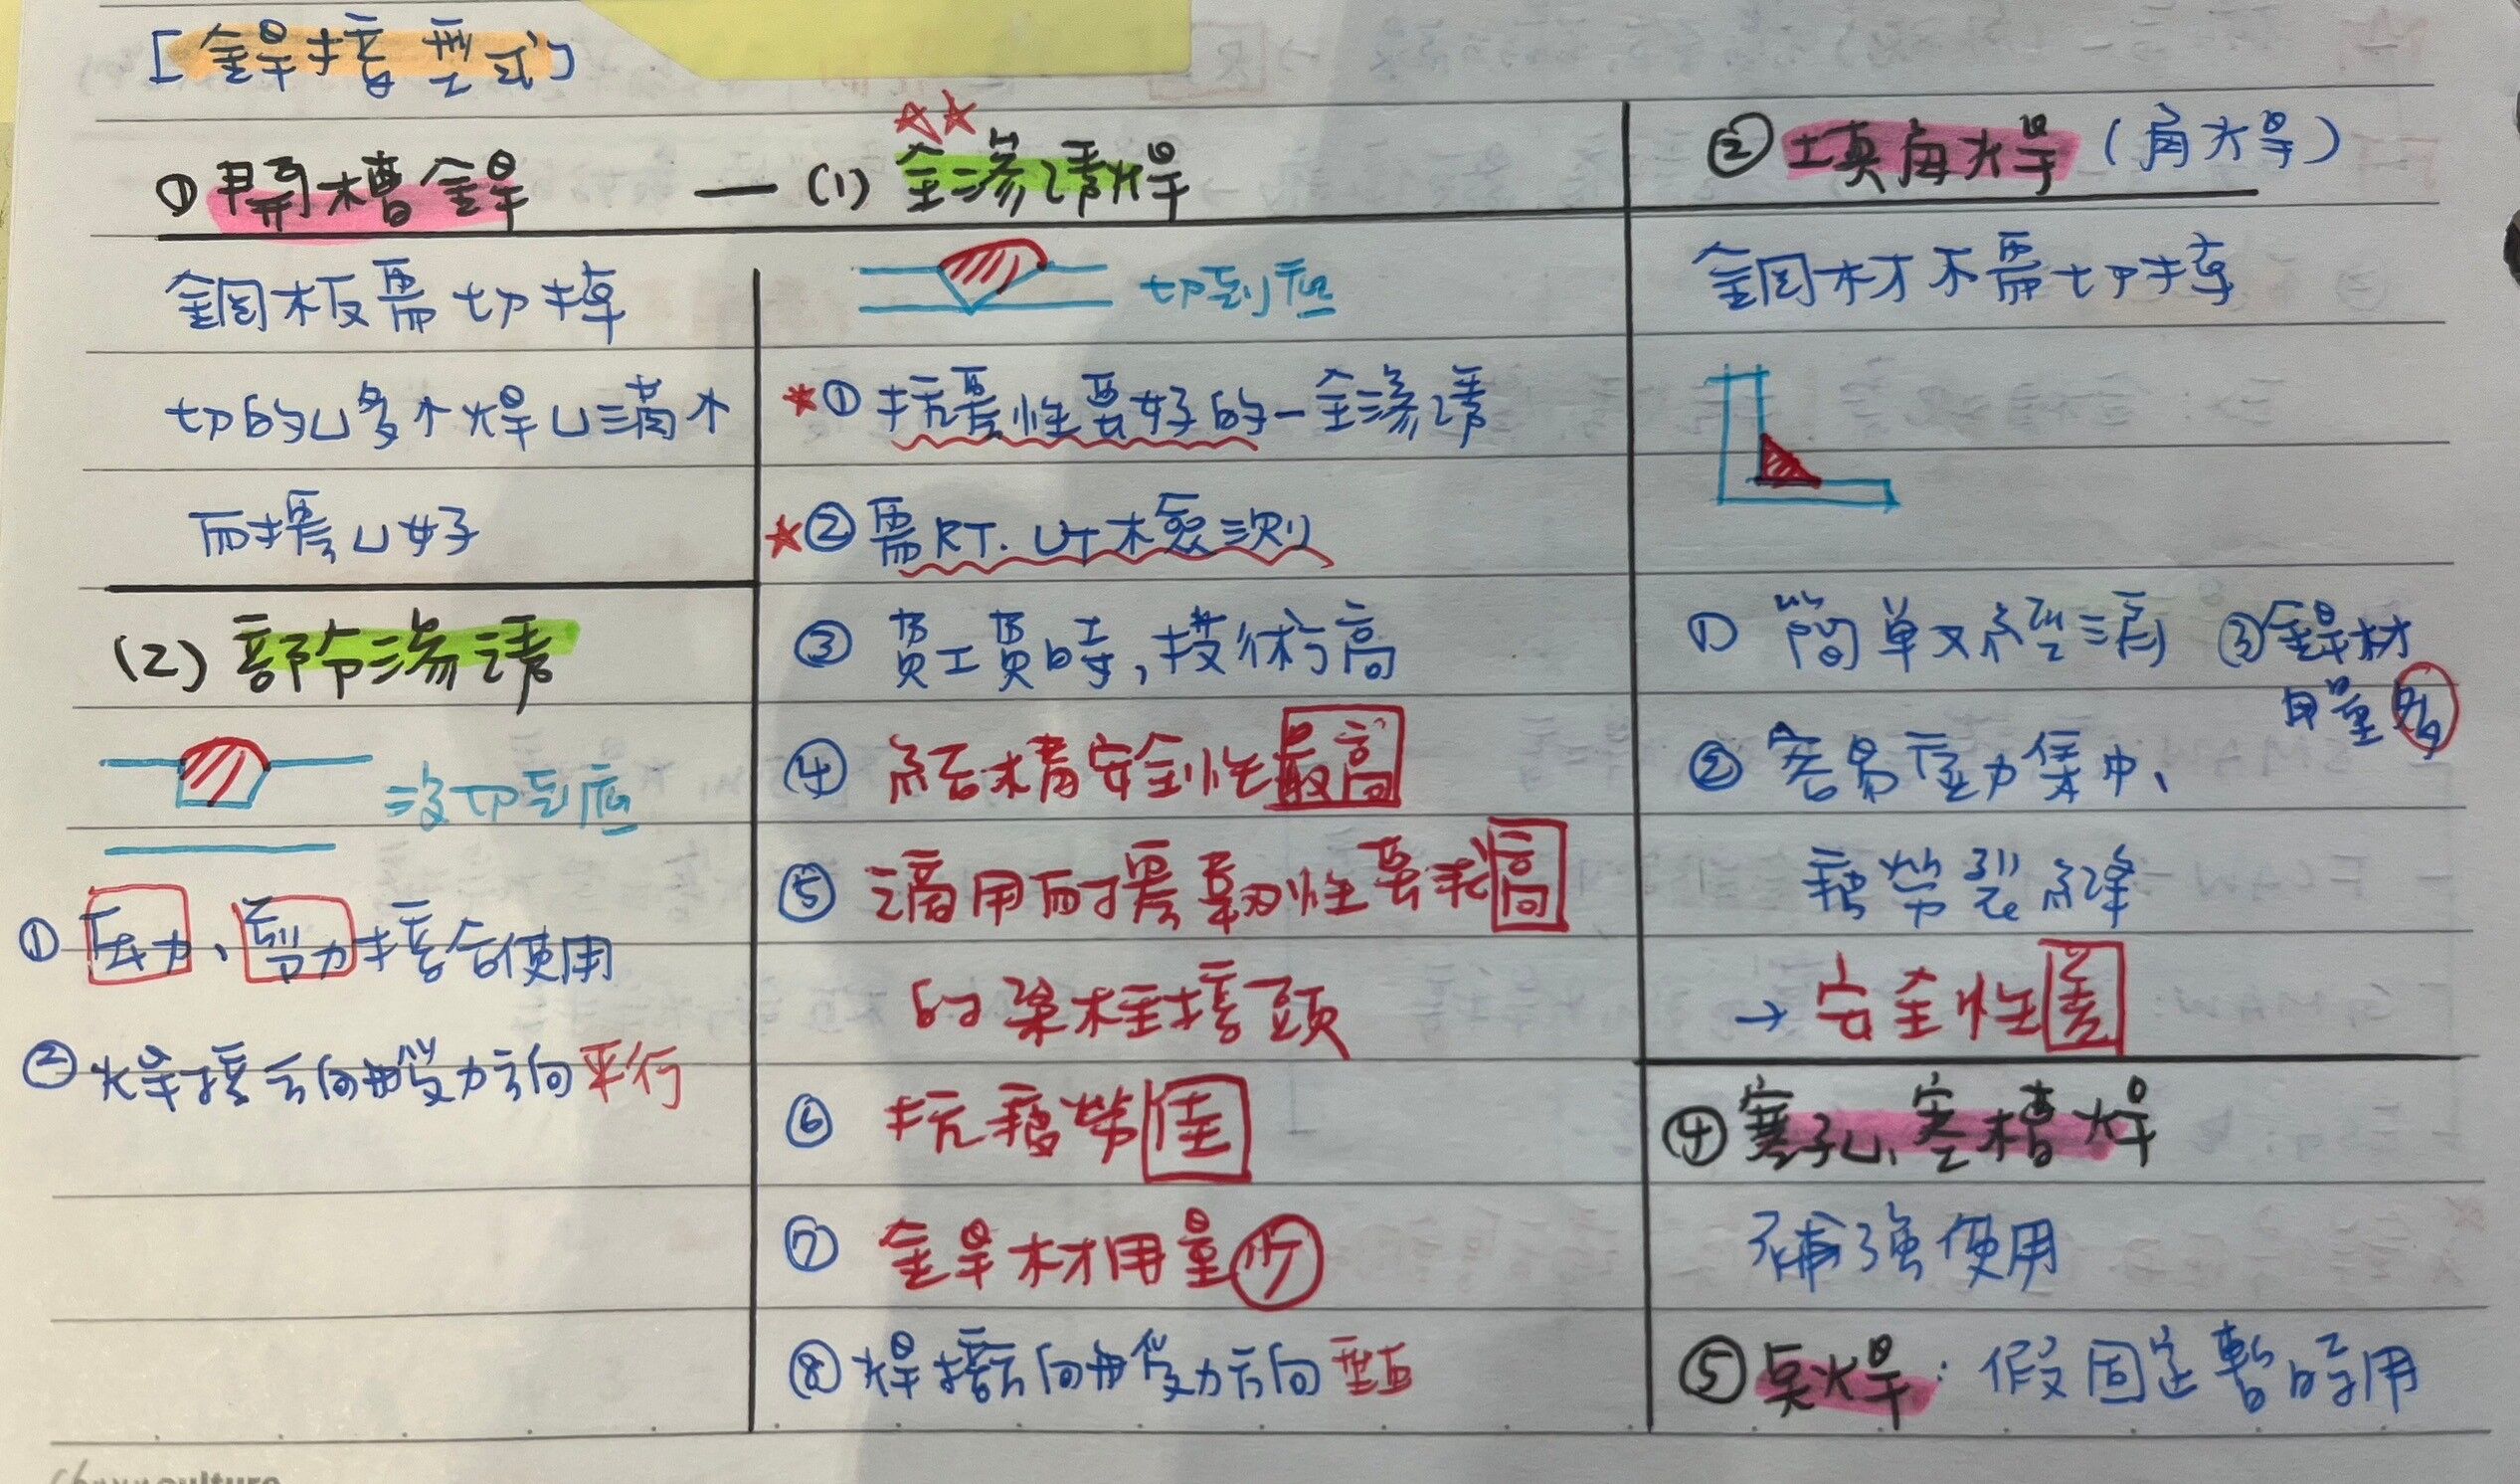 [銲接型式]
① 開槽銲 — (1) 全滲透焊
鋼板需切掉
切的ㄩ多个焊ㄩ滿个
耐震ㄩ好
切到底
*① 抗震性要好的-全滲透
☆② 需RT. UT檢測
③ 費工費時,技術高
④ 結構安全性最高
⑤ 適用耐震韌性要求高
的梁柱接頭
⑥ 抗疲勞佳
⑦ 銲材用量少
⑧ 焊接方向與受力方向垂直
(2) 部份滲透
沒切到底
① 压力、剪力接合使用
② 焊接方向與受力方向平行
② 填角焊 (角焊)
鋼材不需切掉
① 簡單又經濟
② 容易應力集中、
疲勞裂縫
→ 安全性差
③ 銲材
用量多
④ 塞孔、塞槽焊
補強使用
⑤ 点焊: 假固定暫時用